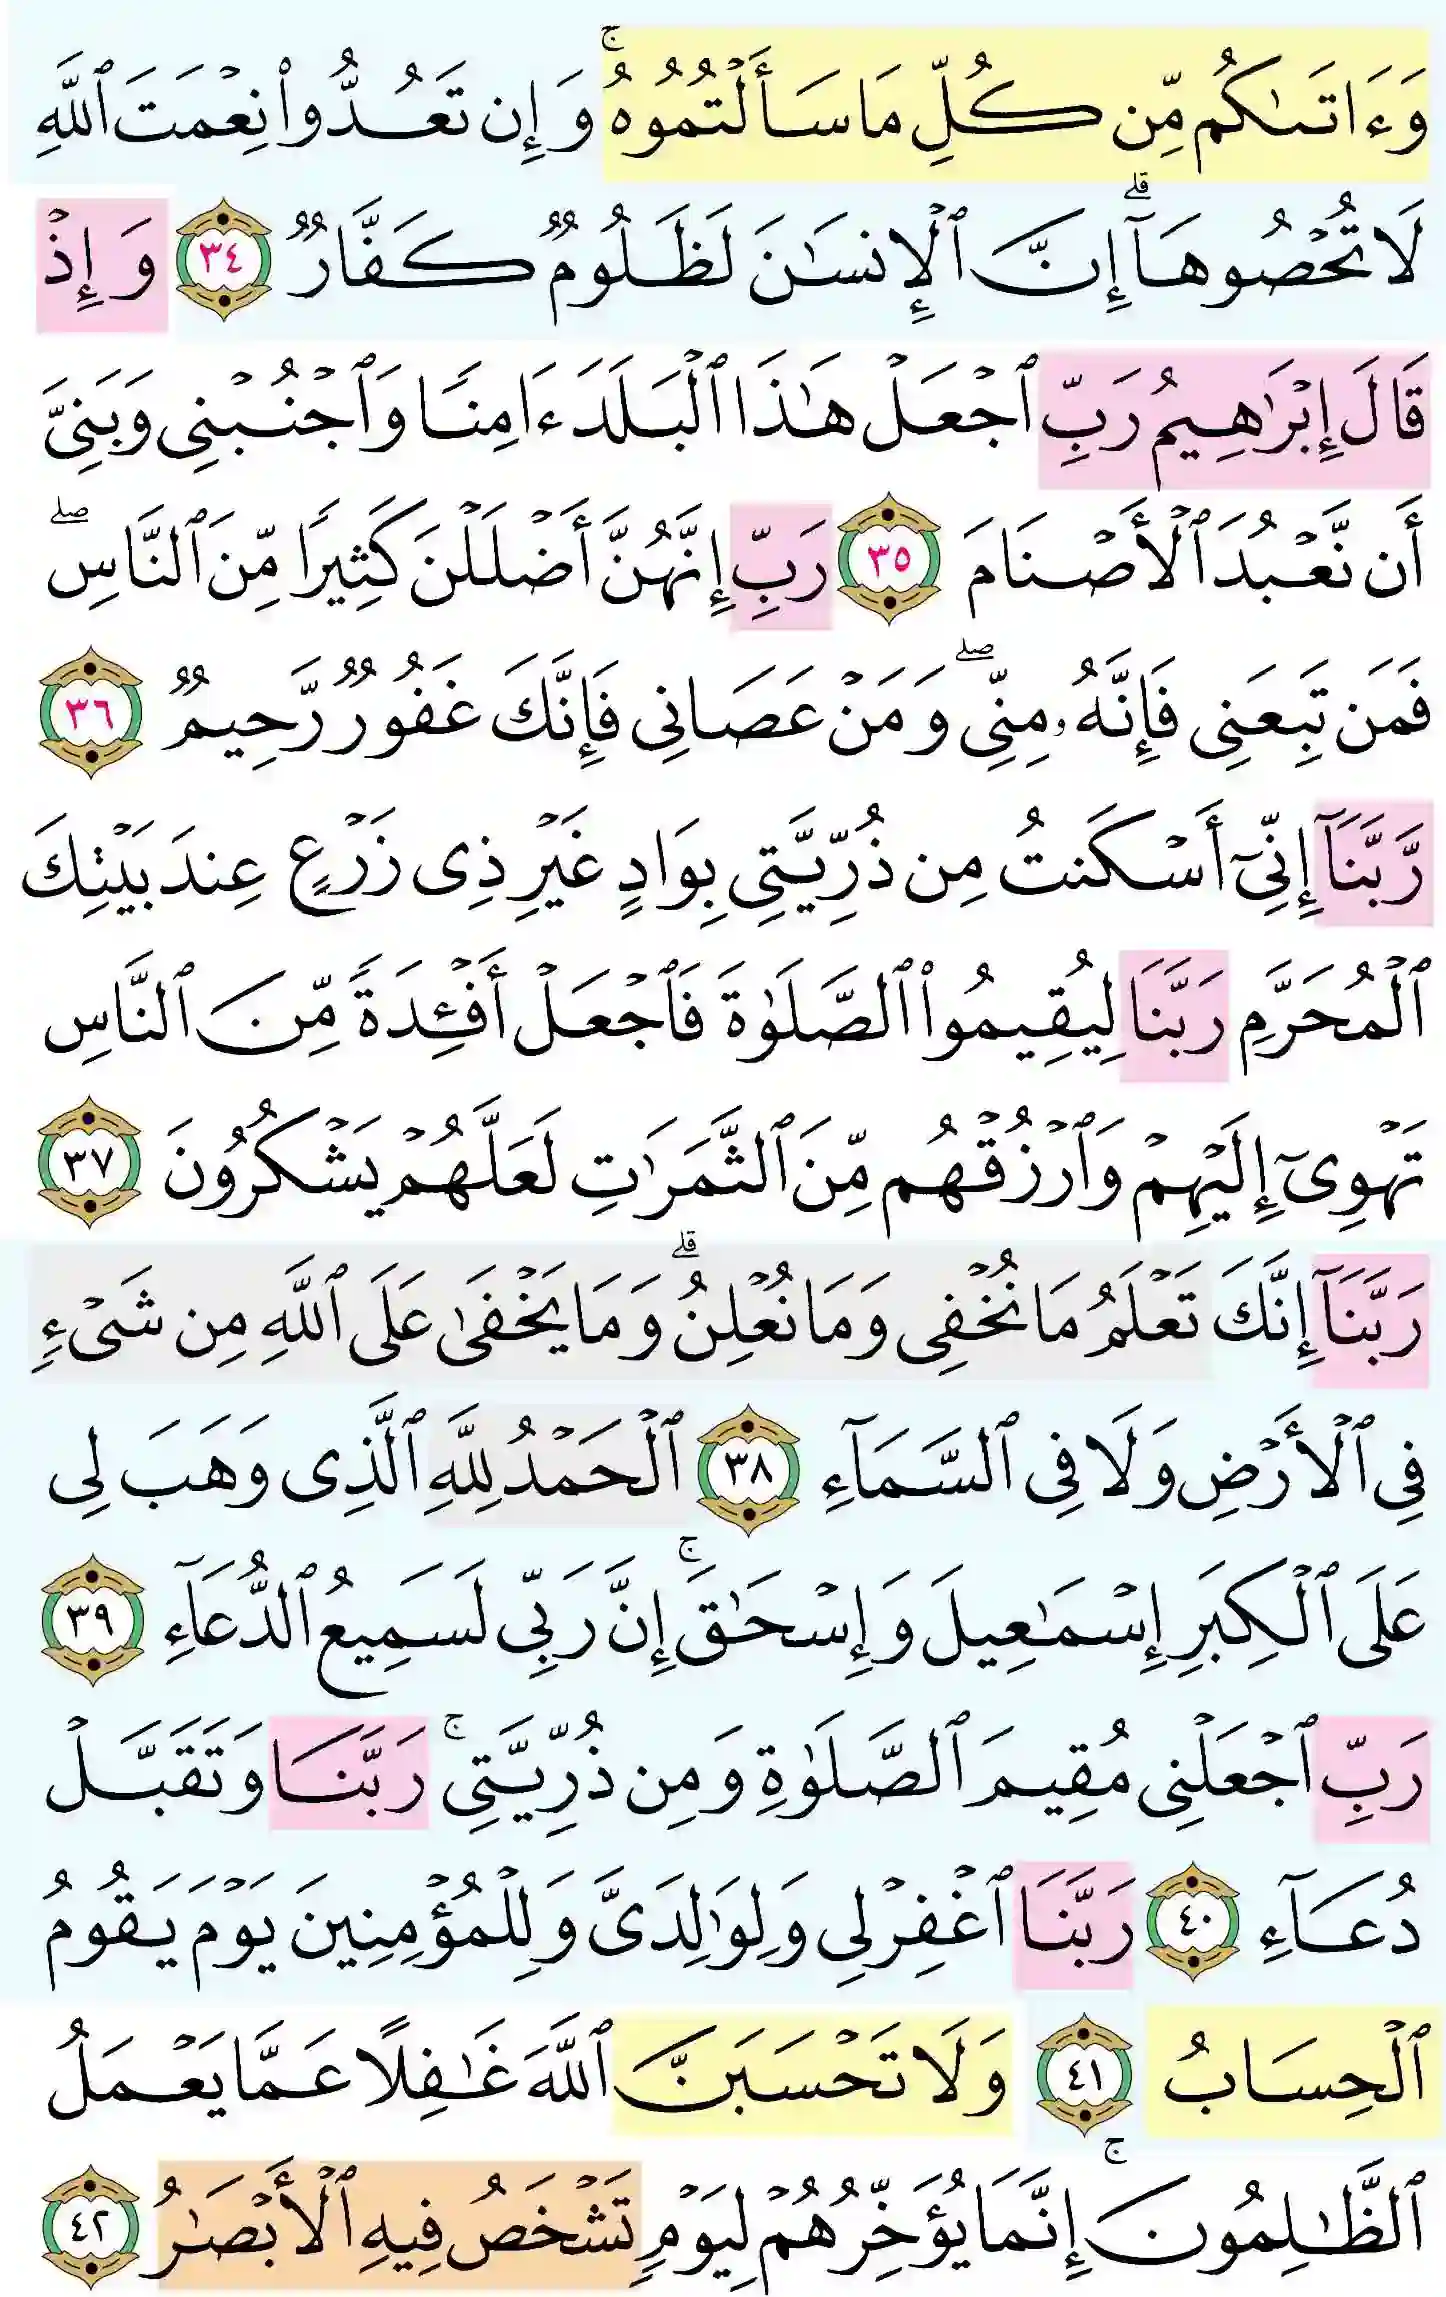 وَءَاتَىٰكُم مِّن كُلِّ مَا سَأَلْتُمُوهُۚ وَإِن تَعُدُّوا۟ نِعْمَتَ ٱللَّهِ
لَا تُحْصُوهَآۗ إِنَّ ٱلْإِنسَـٰنَ لَظَلُومٌ كَفَّارٌ ٣٤ وَإِذْ
قَالَ إِبْرَٰهِيمُ رَبِّ ٱجْعَلْ هَـٰذَا ٱلْبَلَدَ ءَامِنًا وَٱجْنُبْنِى وَبَنِىَّ
أَن نَّعْبُدَ ٱلْأَصْنَامَ ٣٥ رَبِّ إِنَّهُنَّ أَضْلَلْنَ كَثِيرًا مِّنَ ٱلنَّاسِۖ
فَمَن تَبِعَنِى فَإِنَّهُۥ مِنِّىۖ وَمَنْ عَصَانِى فَإِنَّكَ غَفُورٌ رَّحِيمٌ ٣٦
رَّبَّنَآ إِنِّىٓ أَسْكَنتُ مِن ذُرِّيَّتِى بِوَادٍ غَيْرِ ذِى زَرْعٍ عِندَ بَيْتِكَ
ٱلْمُحَرَّمِ رَبَّنَا لِيُقِيمُوا۟ ٱلصَّلَوٰةَ فَٱجْعَلْ أَفْـِٔدَةً مِّنَ ٱلنَّاسِ
تَهْوِىٓ إِلَيْهِمْ وَٱرْزُقْهُم مِّنَ ٱلثَّمَرَٰتِ لَعَلَّهُمْ يَشْكُرُونَ ٣٧
رَبَّنَآ إِنَّكَ تَعْلَمُ مَا نُخْفِى وَمَا نُعْلِنُۗ وَمَا يَخْفَىٰ عَلَى ٱللَّهِ مِن شَىْءٍ
فِى ٱلْأَرْضِ وَلَا فِى ٱلسَّمَآءِ ٣٨ ٱلْحَمْدُ لِلَّهِ ٱلَّذِى وَهَبَ لِى
عَلَى ٱلْكِبَرِ إِسْمَـٰعِيلَ وَإِسْحَـٰقَۚ إِنَّ رَبِّى لَسَمِيعُ ٱلدُّعَآءِ ٣٩
رَبِّ ٱجْعَلْنِى مُقِيمَ ٱلصَّلَوٰةِ وَمِن ذُرِّيَّتِىۚ رَبَّنَا وَتَقَبَّلْ
دُعَآءِ ٤٠ رَبَّنَا ٱغْفِرْ لِى وَلِوَٰلِدَىَّ وَلِلْمُؤْمِنِينَ يَوْمَ يَقُومُ
ٱلْحِسَابُ ٤١ وَلَا تَحْسَبَنَّ ٱللَّهَ غَـٰفِلًا عَمَّا يَعْمَلُ
ٱلظَّـٰلِمُونَۚ إِنَّمَا يُؤَخِّرُهُمْ لِيَوْمٍ تَشْخَصُ فِيهِ ٱلْأَبْصَـٰرُ ٤٢